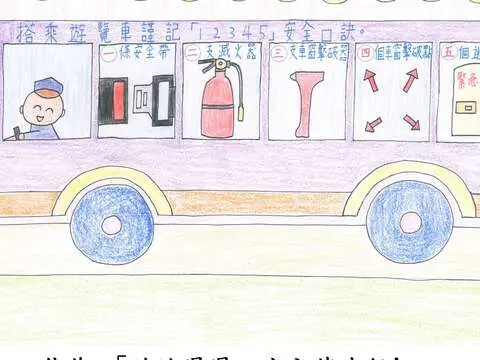 搭乘遊覽車謹記「12345」安全口訣。
一條安全帶
二支滅火器
三支車窗擊破器
四個車窗擊破點
五個逃
緊急